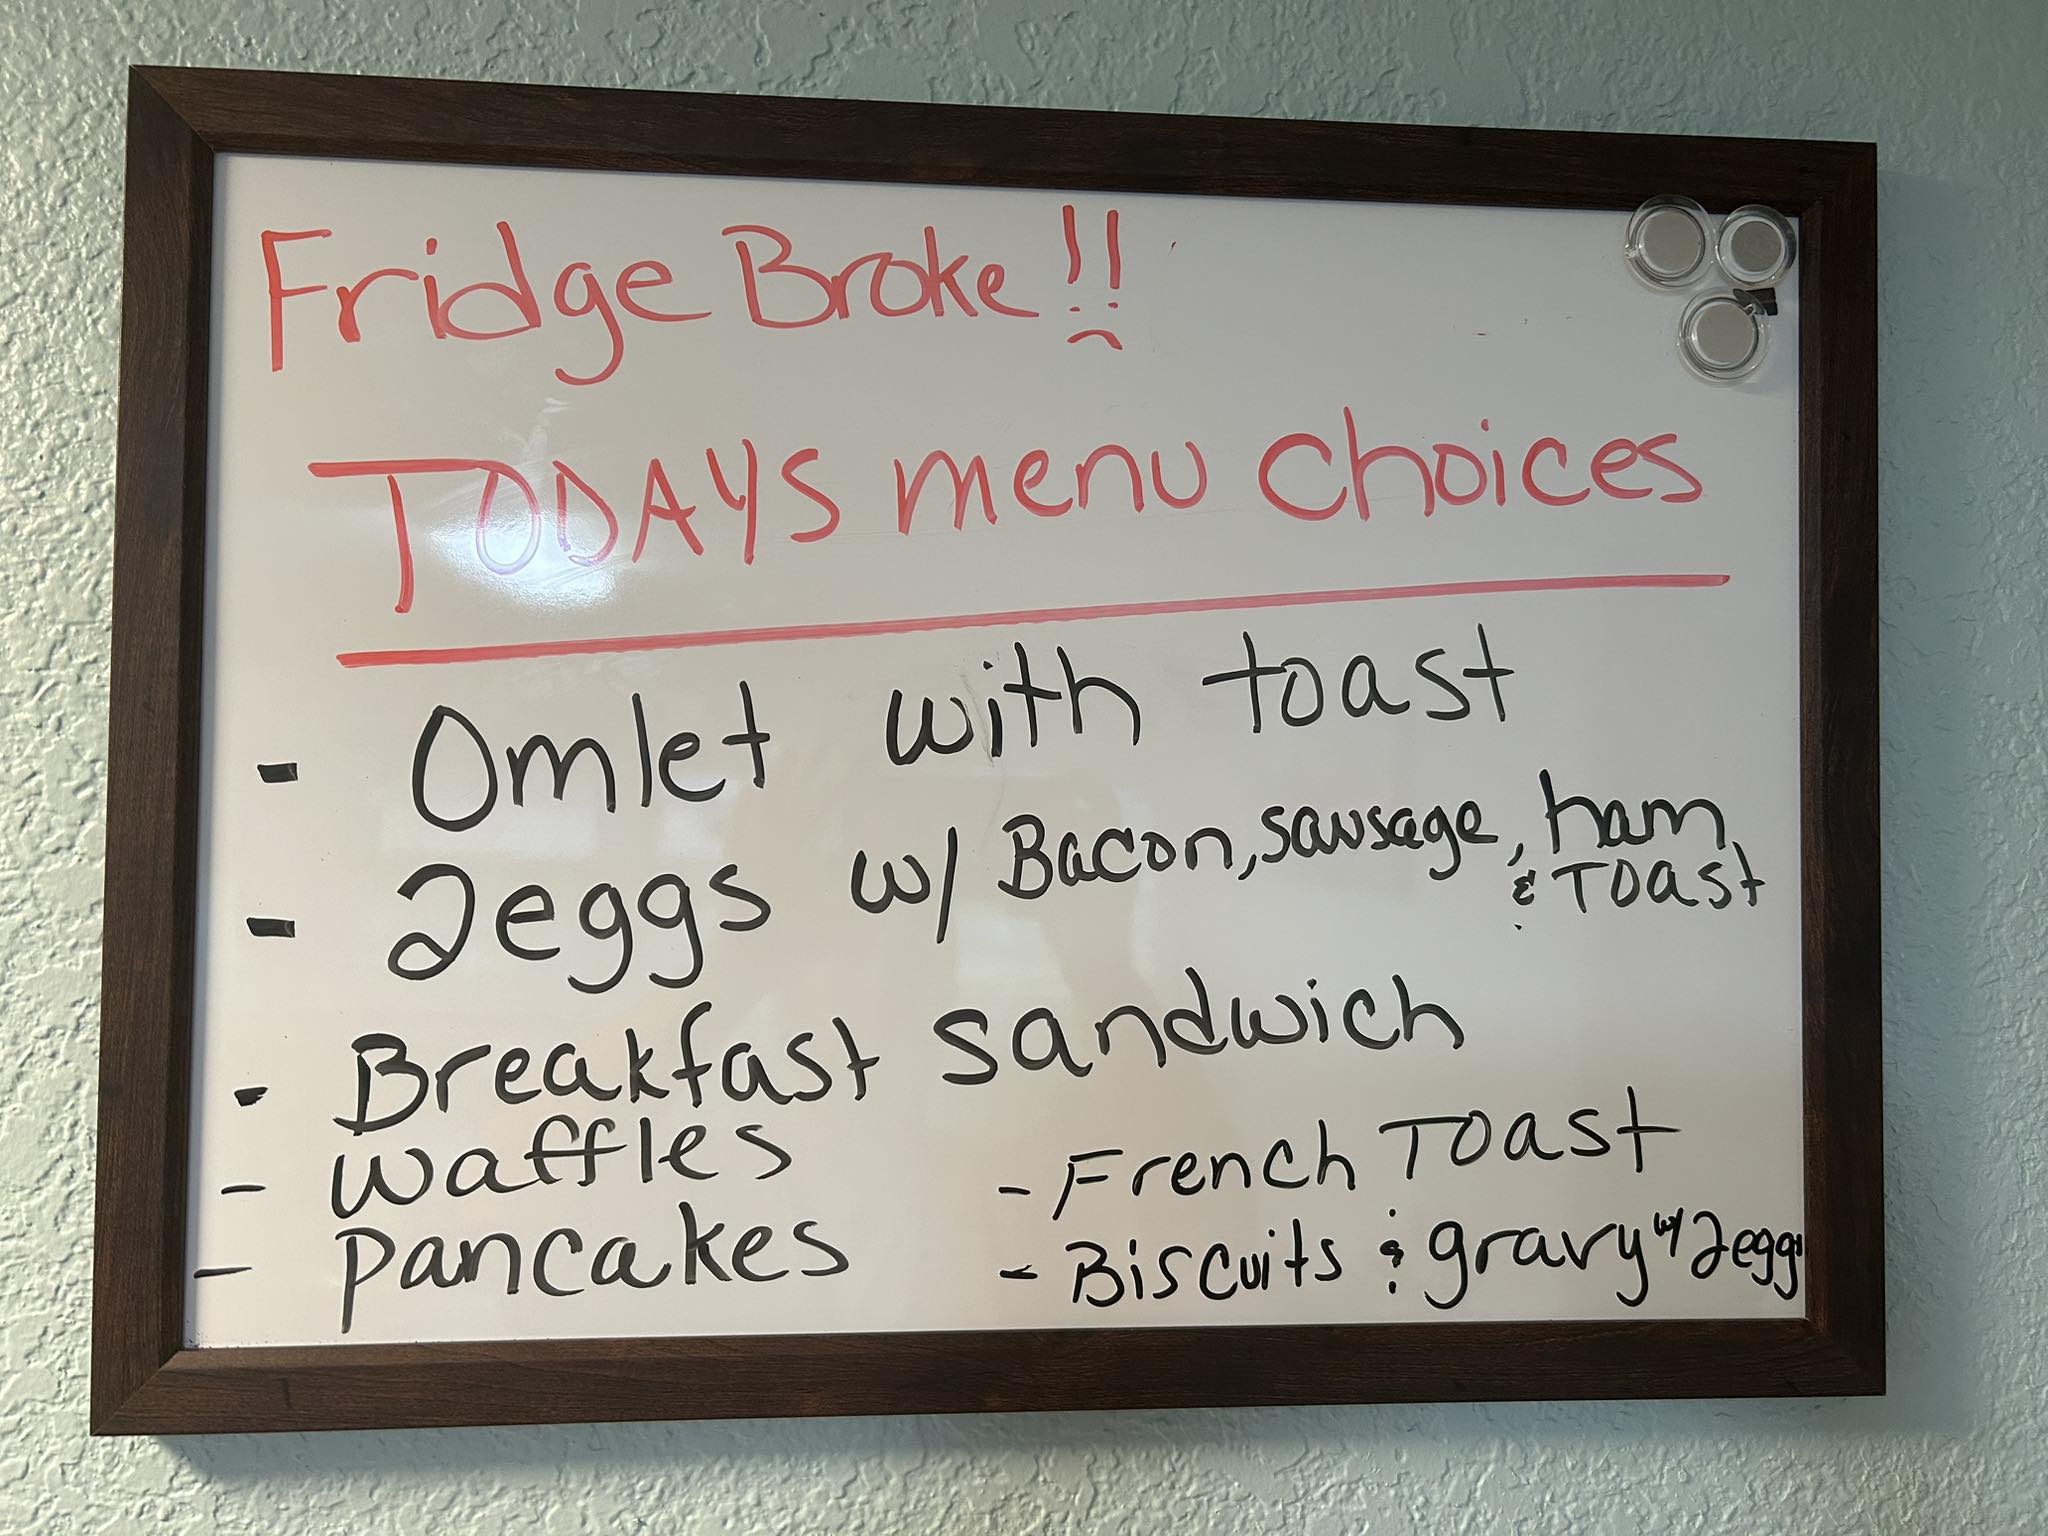 Fridge Broke!!
TODAYS menu choices
- Omlet with toast
- 2eggs w/ Bacon, sausage, ham
& TOast
- Breakfast sandwich
- waffles
- pancakes
- French TOast
- Biscuits & gravy w/ 2eggs